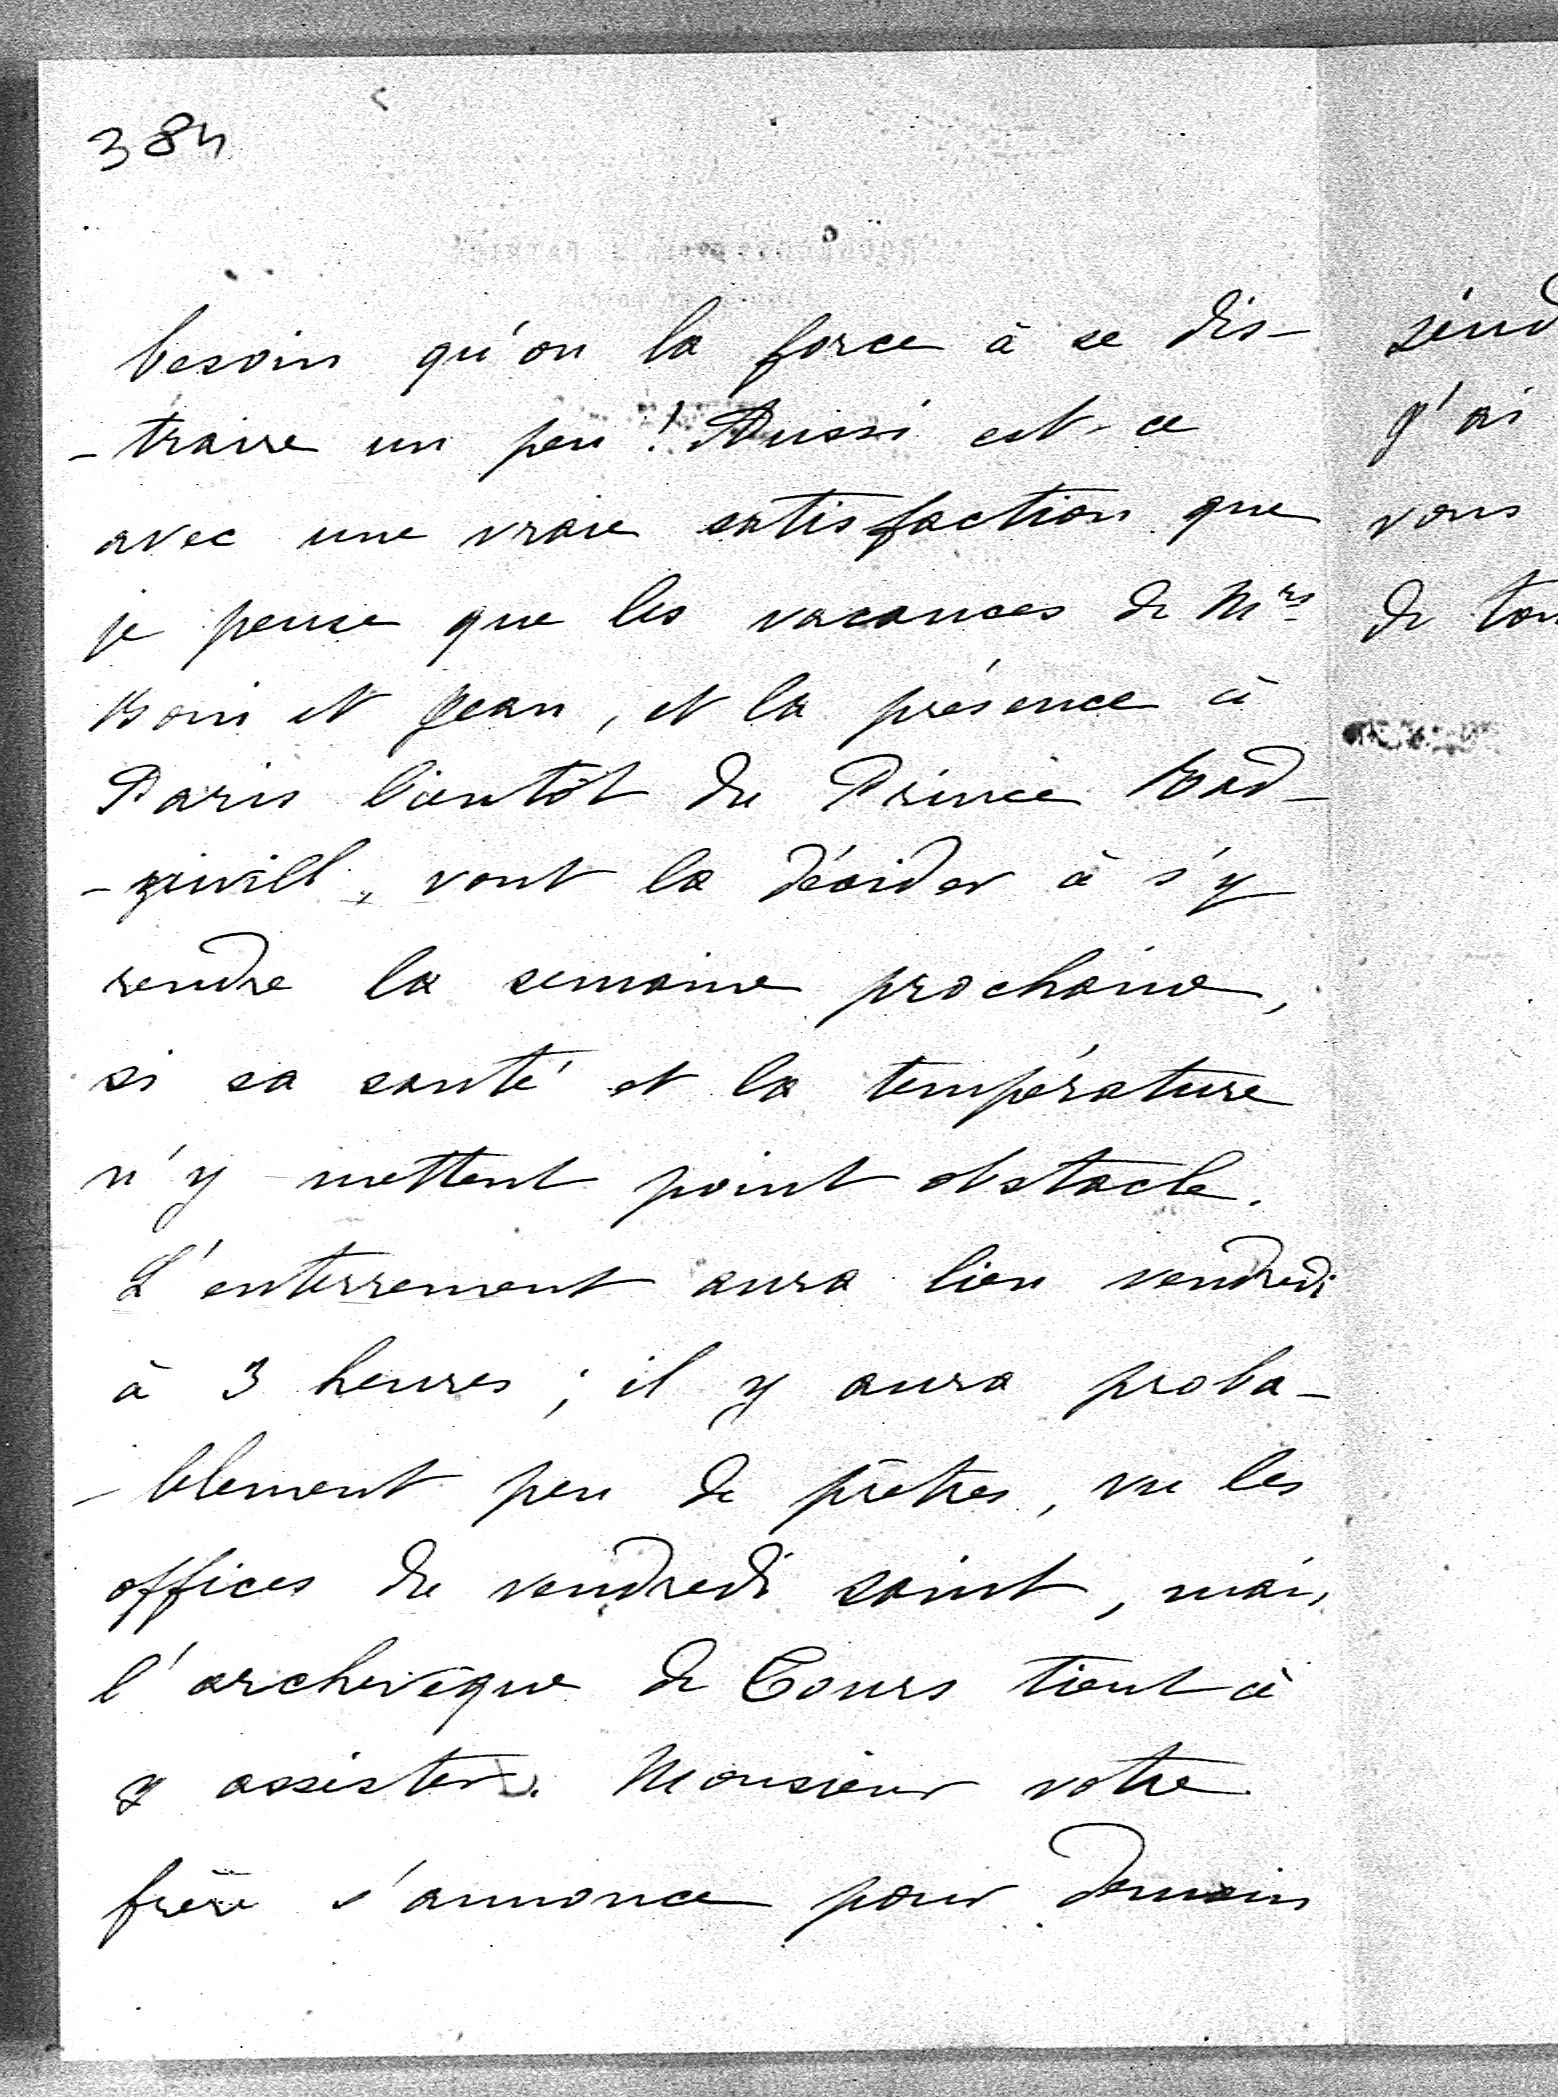 384
besoin qu'on la force à se dis-
-traire un peu ! Aussi est-ce
avec une vraie satisfaction que
je pense que les vacances de Mrs
Boni et Jean, et la présence à
Paris bientôt du Prince Rad-
-ziwill, vont la décider à s'y
rendre la semaine prochaine,
si sa santé et la température
n'y mettent point obstacle.
L'enterrement aura lieu vendredi
à 3 heures ; il y aura proba-
-blement peu de prêtres, vu les
offices du vendredi saint, mais
l'archevêque de Tours tient à
y assister. Monsieur votre
frère s'annonce pour demain
j'ai
vous
de